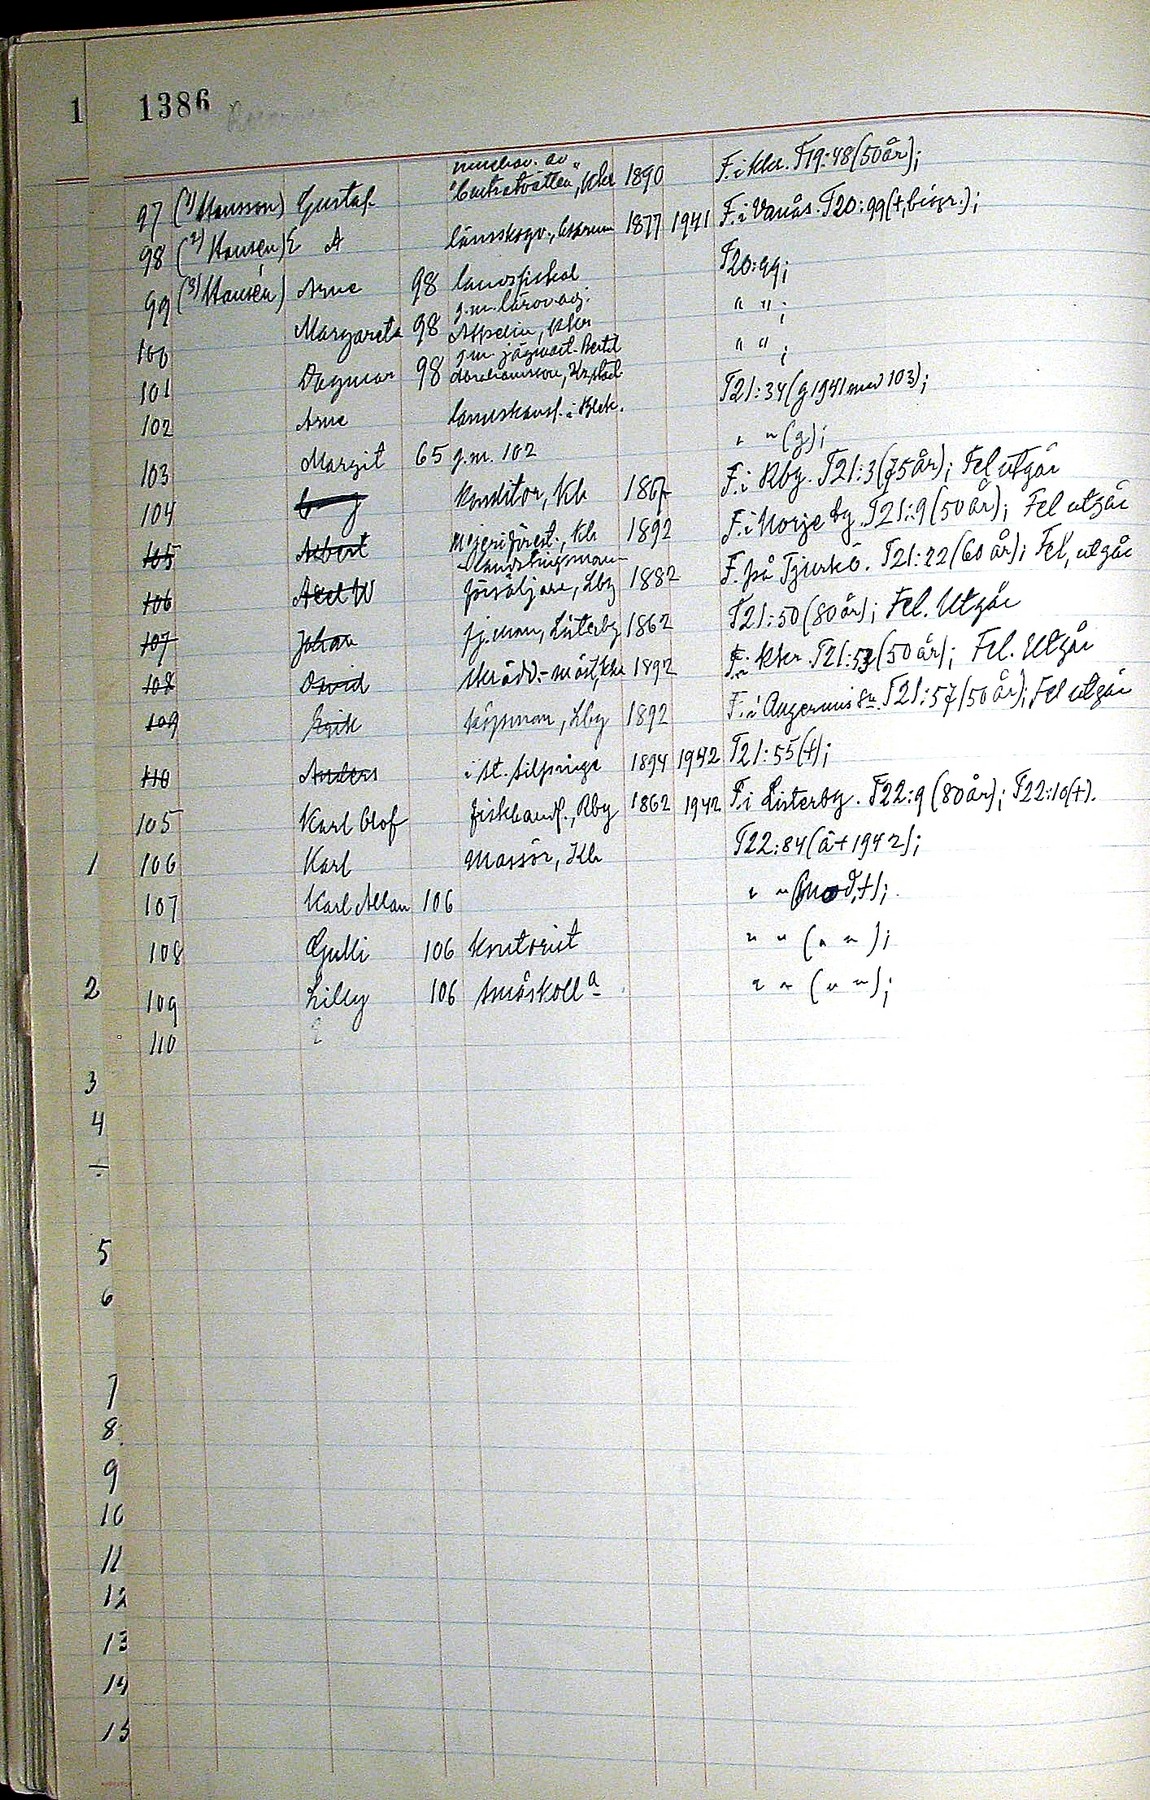 1 1386
innehav. av
97 (1) Hansson) Gustaf "Centraltvätten", Khr 1890 F. i Khr. T19:48 (50 år);
98 (2) Hansén) E A länsskogv., 1877 1941 F. i Vanås. T20:99 (+, biogr.);
99 (3) Hansén) Arne 98 landsfiskal T20:99;
g.m. lärov.adj.
100 Margareta 98 " ";
g.m. jägmäst. Bertil
101 Dagmar 98 " ";
102 Arne landskansl. i Blek. T21:34 (g 1941 med 103);
103 Margit 65 g.m. 102 " " (g);
104 Konditor, Kh F. i Rby. T21:3 (75 år); Fel utgår
105 Albert Mejeriförest., Kh 1892 F. i Norje by. T21:9 (50 år); Fel utgår
Landstingsman
106 Axel W försäljare, Lby 1882 F. på Tjurkö. T21:22 (60 år); Fel, utgår
107 Johan fj.man, Listerby 1862 T21:50 (80 år); Fel. Utgår
108 Ovid skrädd.-mäst, Khr 1892 F. i Khr. T21:53 (50 år); Fel. Utgår
109 Erik köpman, Lby 1892 F. i T21:57 (50 år); Fel utgår
110 Anders i St. Silpinge 1894 1942 T21:55 (+);
105 Karl Olof fiskhandl., Rby 1862 1942 F. i Listerby. T22:9 (80 år); T22:10 (+).
1 106 Karl Massör, Kh T22:84 (å + 1942);
107 Karl Allan 106 " " (mod, +);
108 Gulli 106 kontorist " " (" ");
2 109 Lilly 106 småskoll<sup>a</sup> " " (" ");
110
3
4
÷
5
6
7
8
9
10
11
12
13
14
15